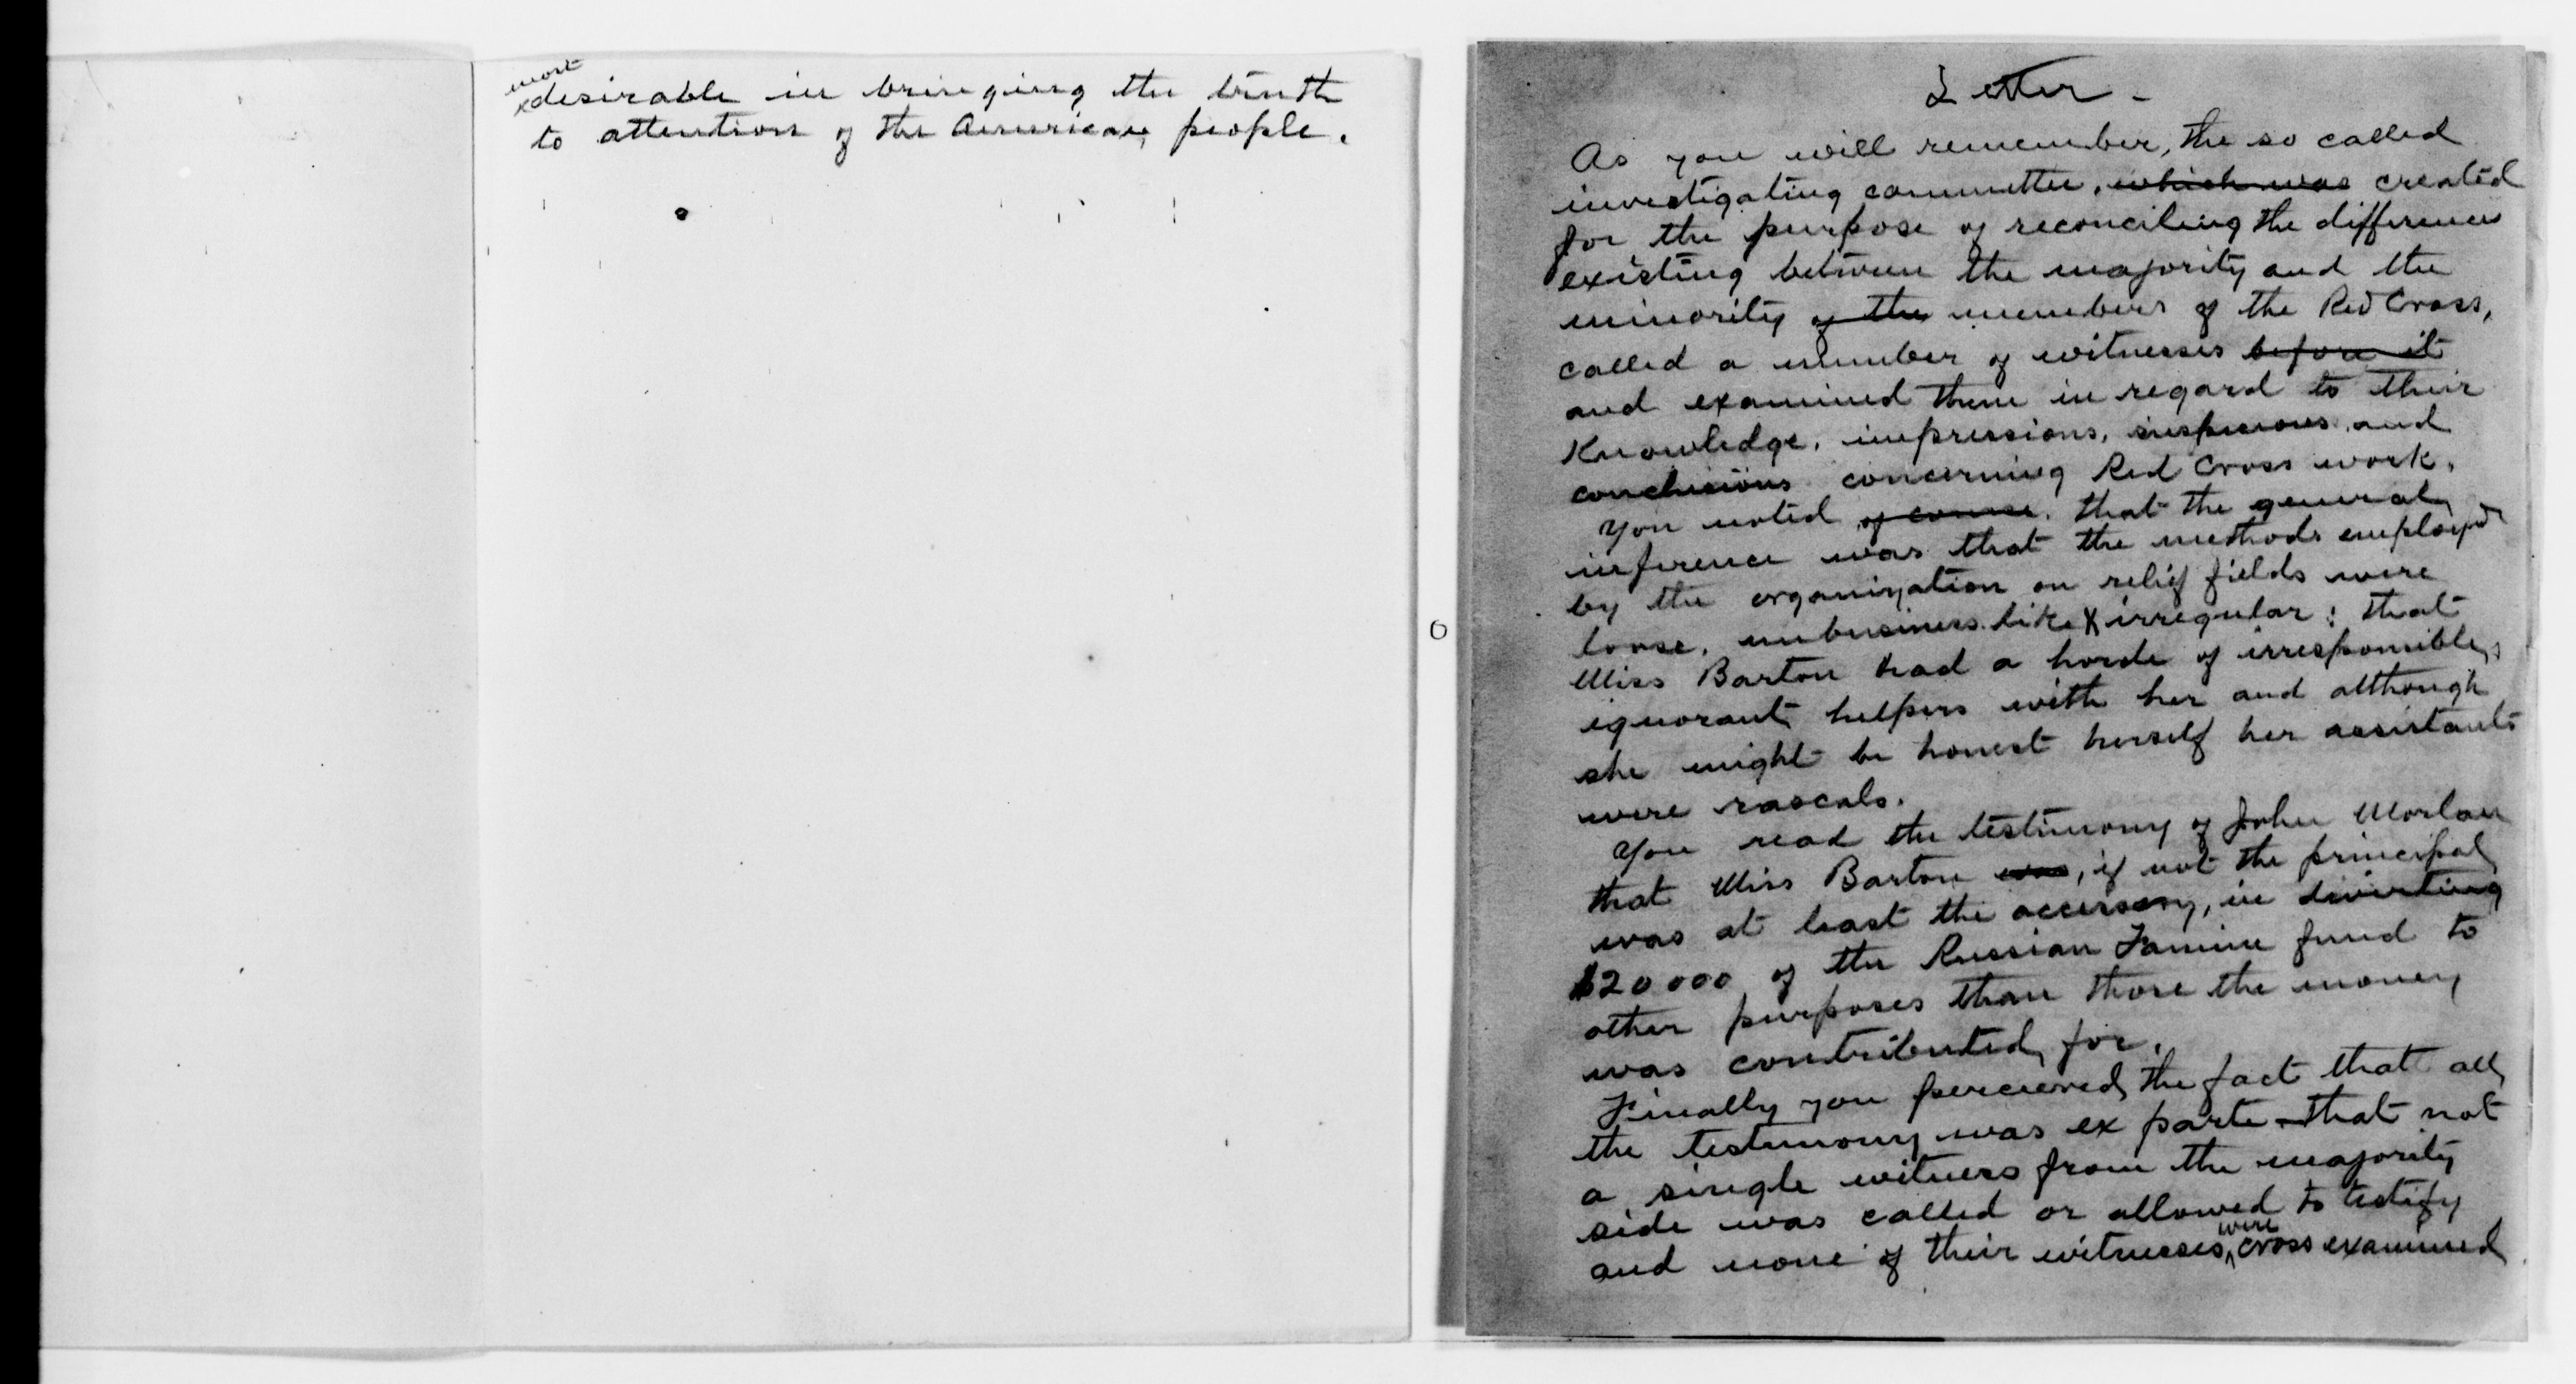 most
desirable in bringing the truth
to attention of the American people.
Letter -
As you will remember, the so called
investigating committee, which was created
for the purpose of reconciling the differences
existing between the majority and the
minority of the members of the Red Cross,
called a number of witnesses before it
and examined them in regard to their
Knowledge, impressions, suspicions, and
conclusions concerning Red Cross work.
You noted of course, that the general
inference was that the methods employed
by the organization on relief fields were
loose, unbusiness-like & irregular; that
Miss Barton had a horde of irresponsible,
ignorant helpers with her and although
she might be honest herself her assistants
were rascals.
You read the testimony of John Morlan
that Miss Barton was, if not the principal
was at least the accessory, in diverting
$20000 of the Russian Famine fund to
other purposes than those the money
was contributed for.
Finally you perceived the fact that all
the testimony was ex parte - that not
a single witness from the majority
side was called or allowed to testify
and none of their witnesses were cross examined